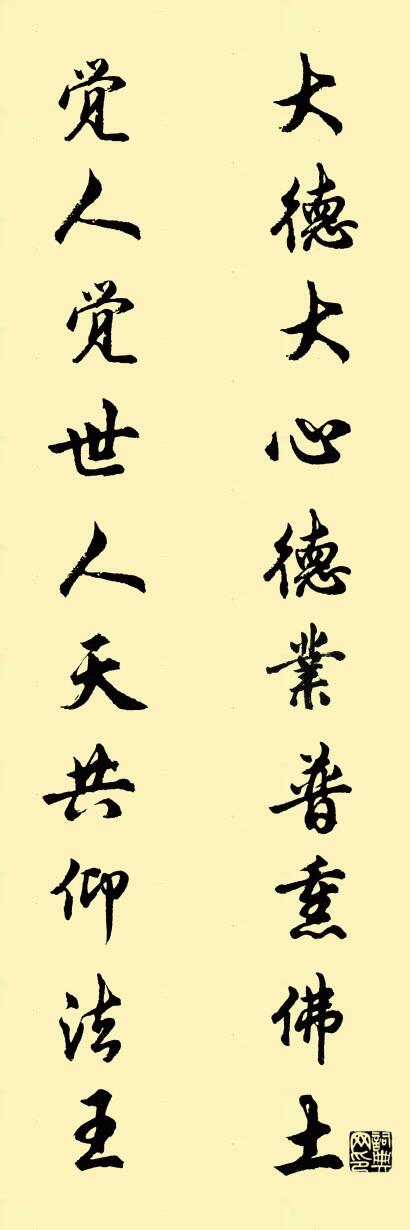 大德大心德業普熏佛土
觉人觉世人天共仰法王
詞典网印